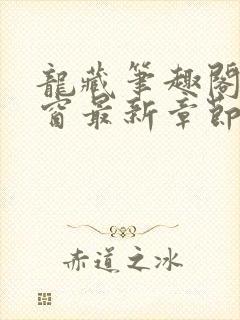 龍藏筆趣閣
窗最新章節
赤道之冰